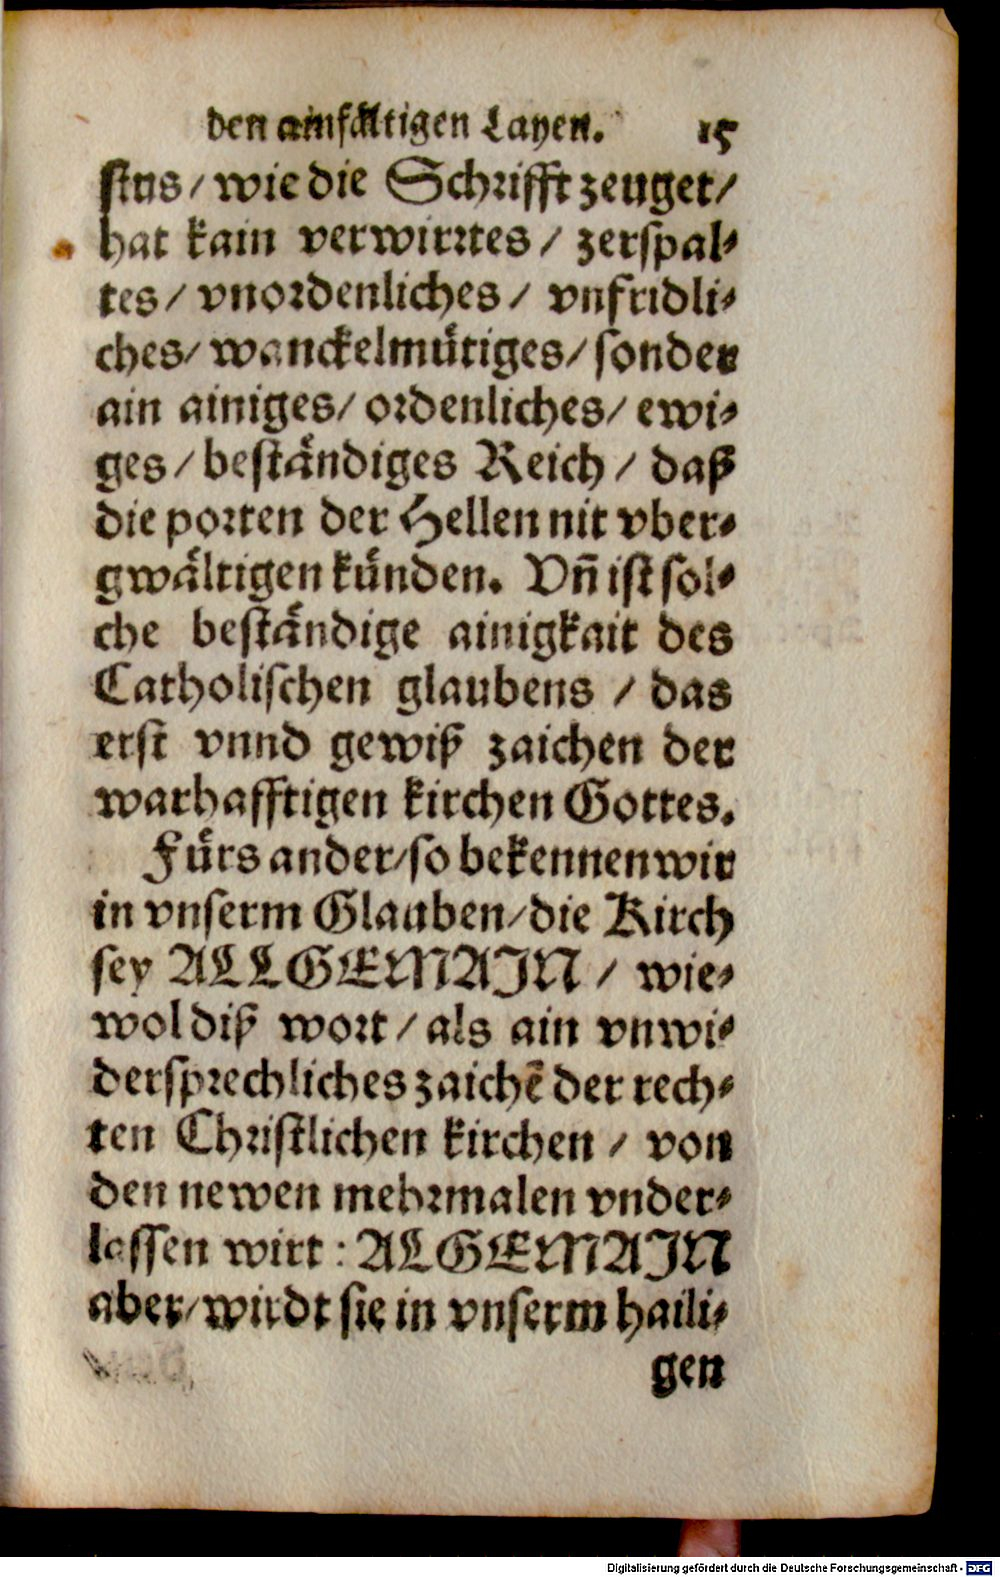 den ainfältigen Layen. 15
stus / wie die Schrifft zeuget /
hat kain verwirrtes / zerspal⸗
tes / vnordenliches / vnfridli⸗
ches / wanckelmütiges / sonder
ain ainiges / ordenliches / ewi⸗
ges / beständiges Reich / daß
die porten der Hellen nit vber⸗
gwältigen künden. Vñ ist sol⸗
che beständige ainigkait des
Catholischen glaubens / das
erst vnnd gewiß zaichen der
warhafftigen kirchen Gottes.
Fürs ander / so bekennen wir
in vnserm Glauben / die Kirch
sey ALLGEMAIN / wie⸗
wol diß wort / als ain vnwi⸗
dersprechliches zaichē der rech⸗
ten Christlichen kirchen / von
den newen mehrmalen vnder⸗
lassen wirt : ALGEMAIN
aber / wirdt sie in vnserm haili⸗
gen
Digitalisierung gefördert durch die Deutsche Forschungsgemeinschaft - DFG